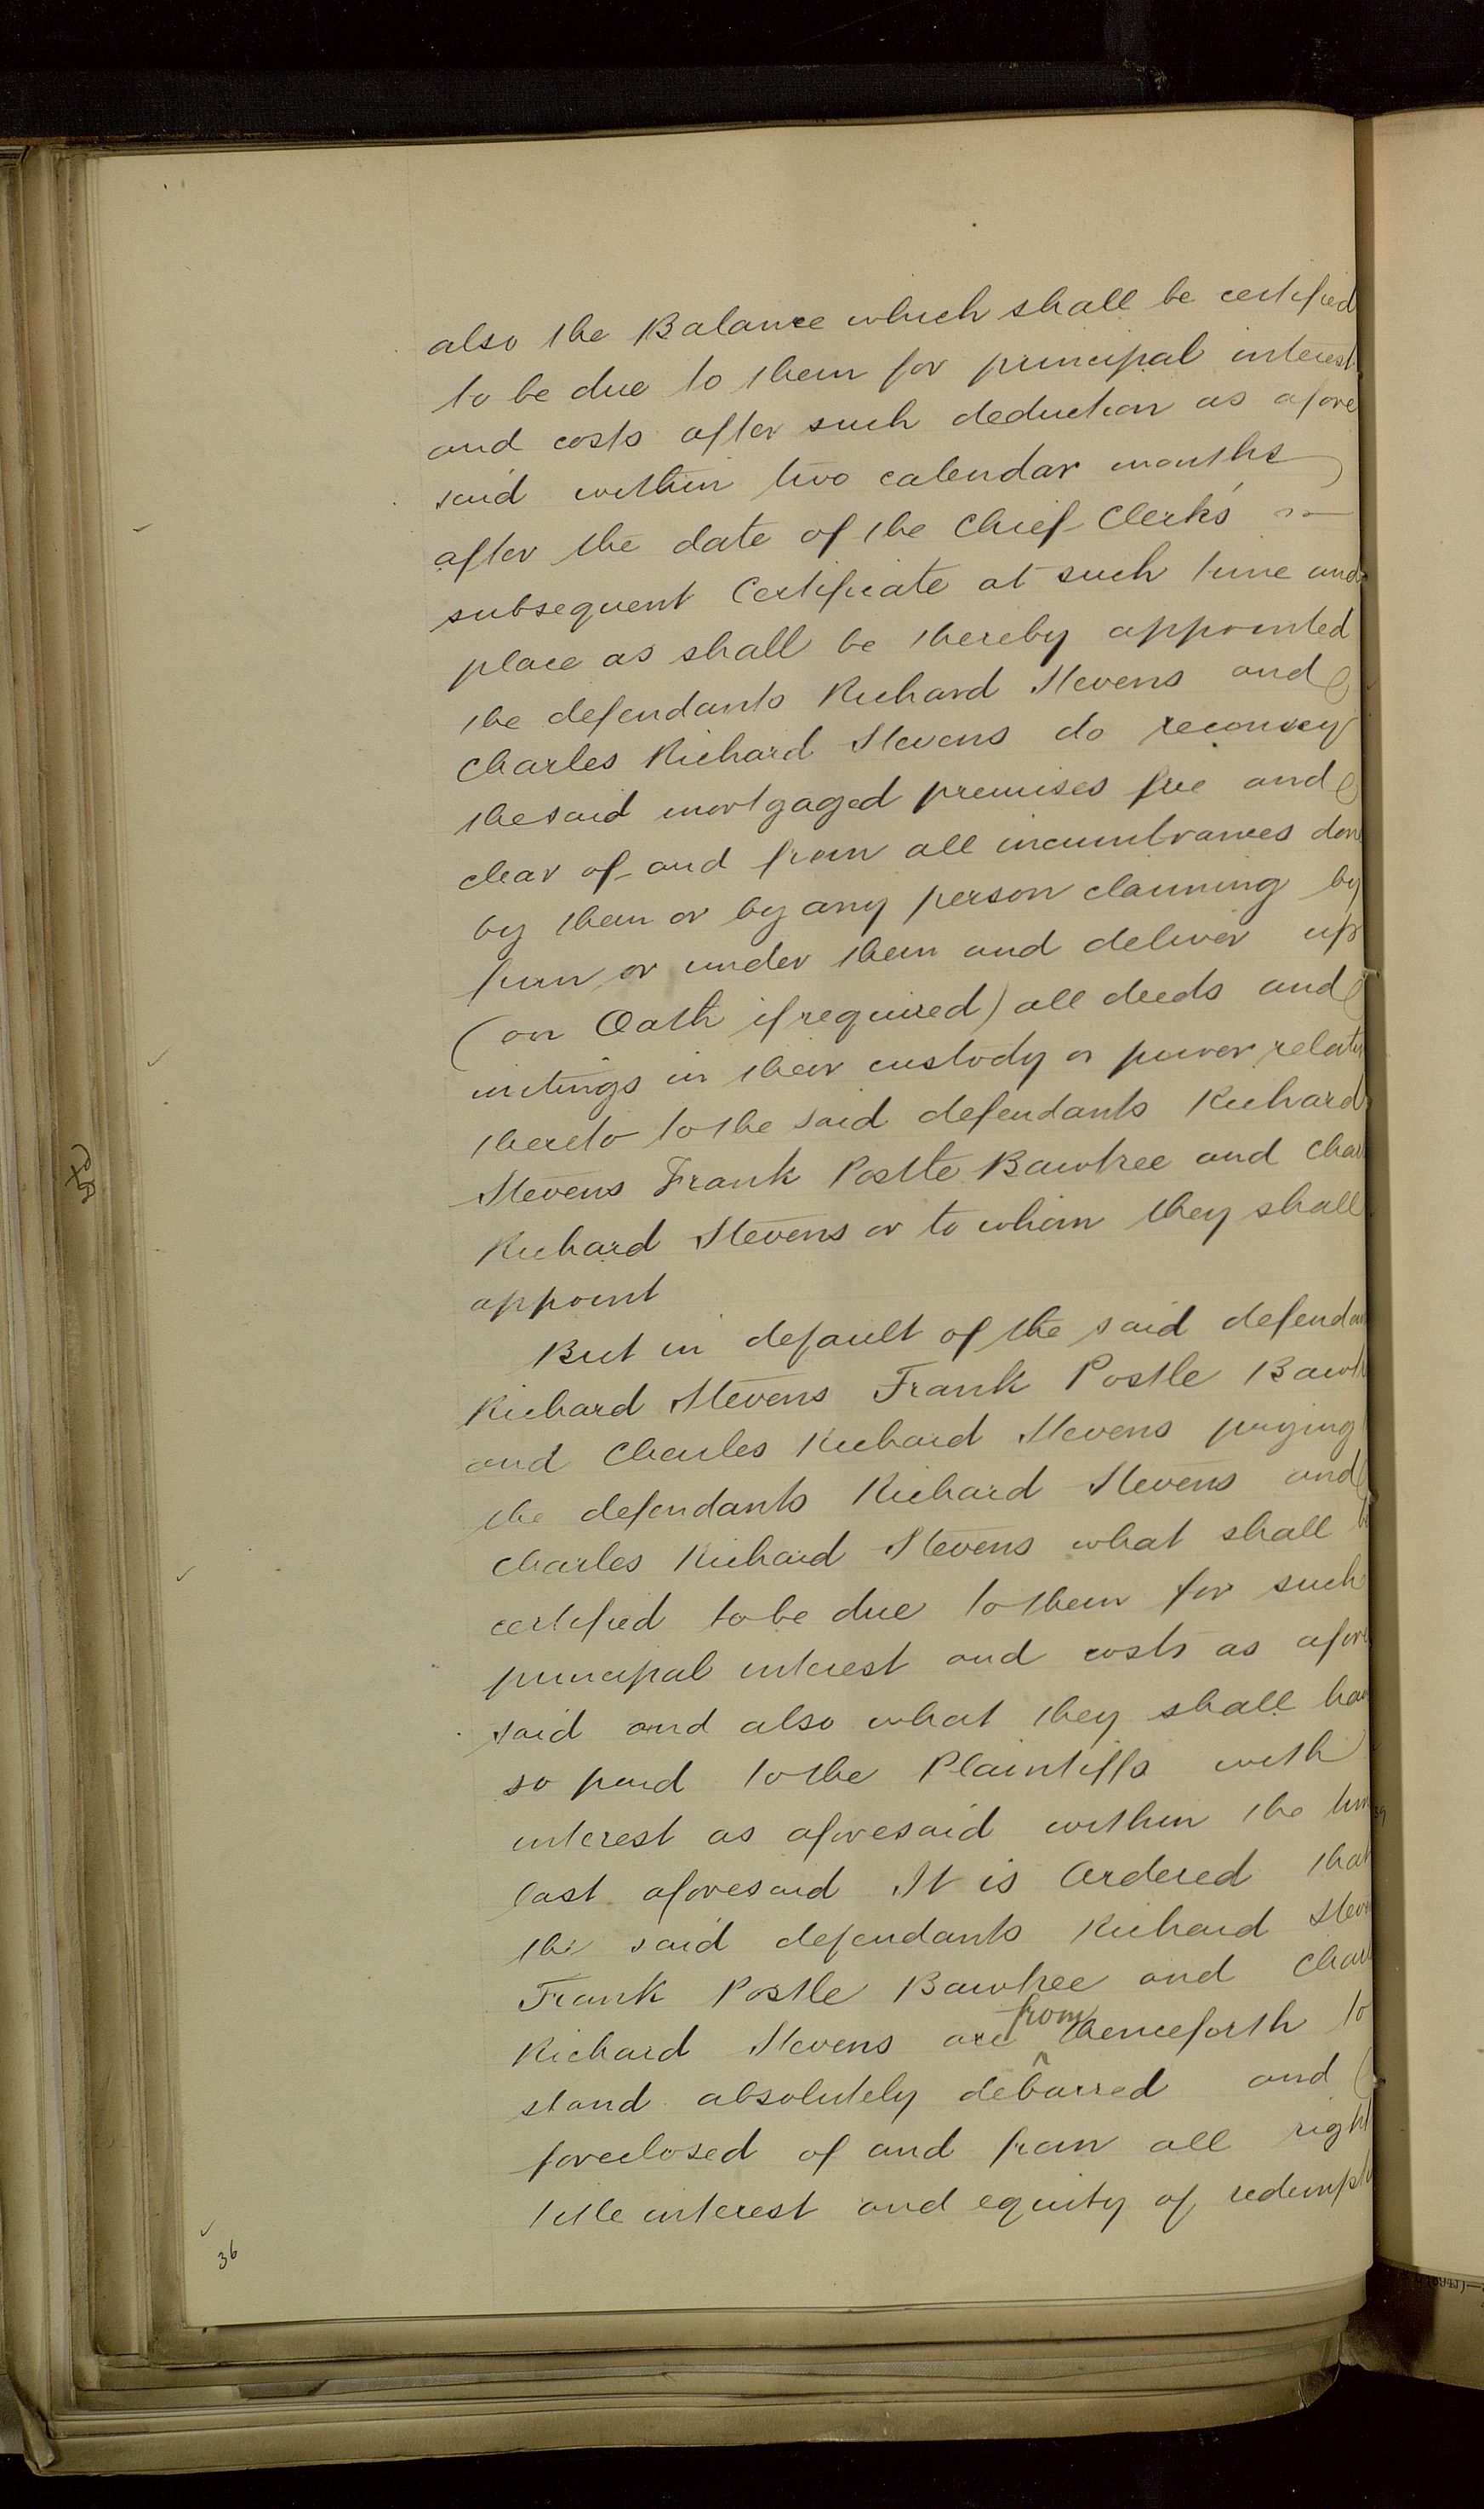 also the Balance which shall be certified
to be due to them for principal interest
and costs after such deduction as afore
said within two calendar months
after the date of the Chief Clerk's
subsequent Certificate at such time and
place as shall be thereby appointed
the defendants Richard Stevens and
Charles Richard Stevens do reconvey
the said mortgaged premises free and
clear of and from all incumbrances done
by them or by any person claiming by
from or under them and deliver up
(on Oath if required) all deeds and
writings in their custody or power relatin
thereto to the said defendants Richard
Stevens Frank Postle Bawtree and Char
Richard Stevens or to whom they shall
appoint
But in default of the said defendan
Richard Stevens Frank Postle Bawt
and Charles Richard Stevens paying
the defendants Richard Stevens and
Charles Richard Stevens what shall b
certified to be due to them for such
principal interest and costs as afore
said and also what they shall hav
so paid to the Plaintiffs with
interest as aforesaid within the tim
last aforesaid It is Ordered that
the said defendants Richard Steve
Frank Postle Bawtree and Charl
Richard Stevens are from thenceforth to
stand absolutely debarred and
foreclosed of and from all right
title interest and equity of redempti
36